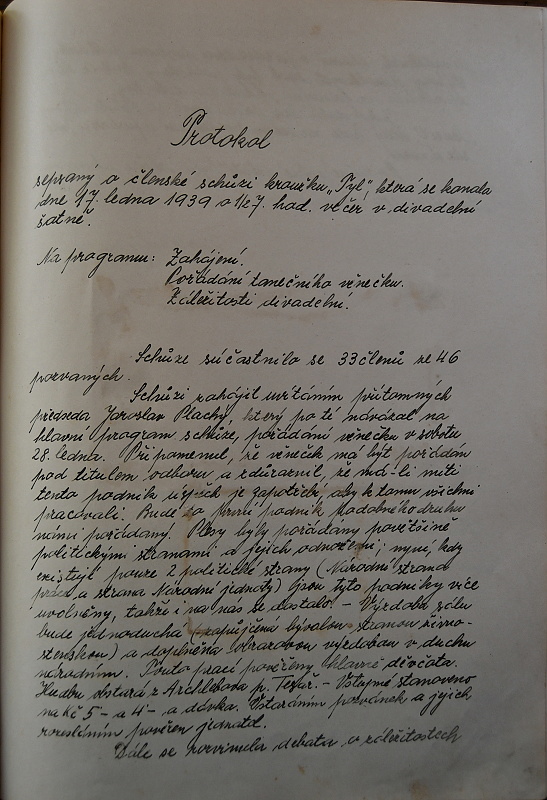 Protokol
sepsaný o členské schůzi kroužku „Tyl", která se konala
dne 17. ledna 1939 o ½7. hod. večer v divadelní
šatně.
Na programu: Zahájení.
Pořádání tanečního věnečku.
Záležitosti divadelní.
Schůze súčastnilo se 33 členů ze 46
pozvaných.
Schůzi zahájil uvítáním přítomných
předseda Jaroslav Plachý, který po té navázal na
hlavní program schůze, pořádání věnečku v sobotu
28. ledna. Připomenul, že věneček má být pořádán
pod titulem odboru a zdůraznil, že má-li míti
tento podnik úspěch je zapotřebí, aby k tomu všichni
pracovali. Bude to první podnik podobného druhu
námi pořádaný. Plesy byly pořádány povětšině
politickými stranami a jejich odnožemi; nyní, kdy
existují pouze 2 politické strany (Národní strana
práce a strana Národní jednoty) jsou tyto podniky více
uvolněny, takže i na nás se dostalo. - Výzdoba sálu
bude jednoduchá (zapůjčená bývalou stranou živno-
stenskou) a doplněna obrazovou výzdobou v duchu
národním. Touto prací pověřeny hlavně děvčata.
Hudbu obstará z Archlebova p. Tesař. - Vstupné stanoveno
na Kč 5- a 4- a dávka. Obstaráním pozvánek a jejich
rozesláním pověřen jednatel.
Dále se rozvinula debata o záležitostech